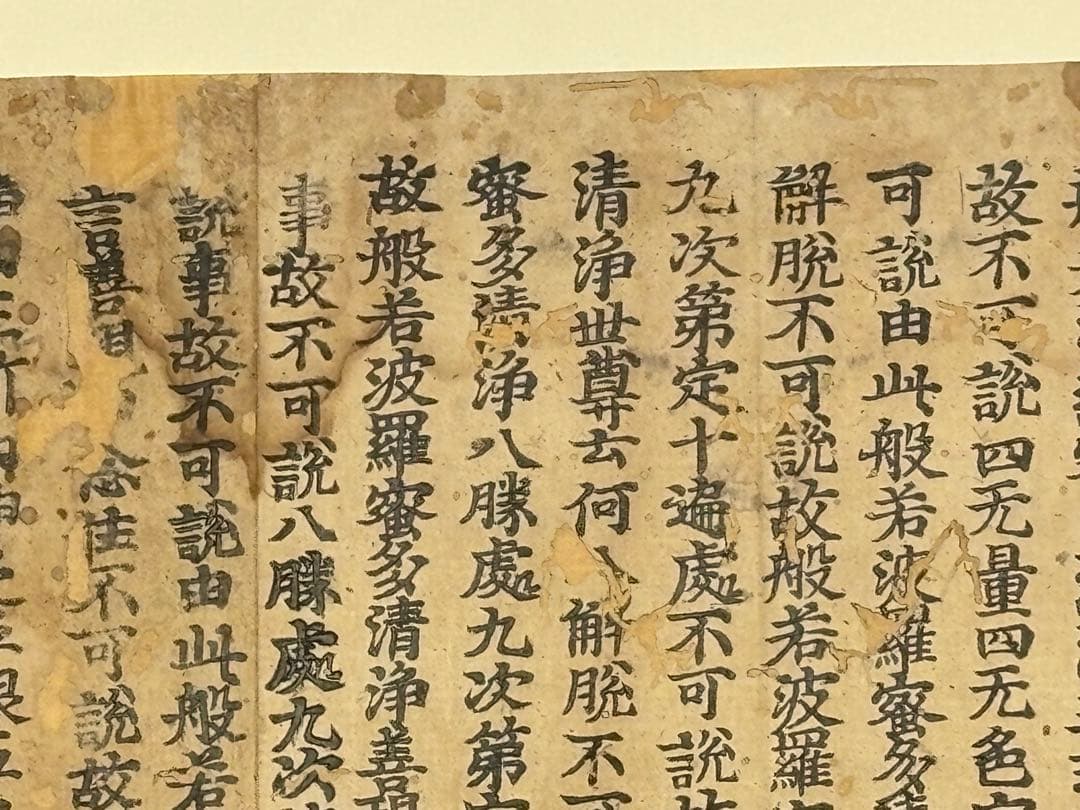 故不可説四无量四无色
可説由此般若波羅蜜多
解脱不可説故般若波羅
九次第定十遍處不可説
清浄世尊云何八解脱不可
蜜多清浄八勝處九次第定
故般若波羅蜜多清浄善現
事故不可説八勝處九次
説事故不可説由此般若
言善現 念住不可説故